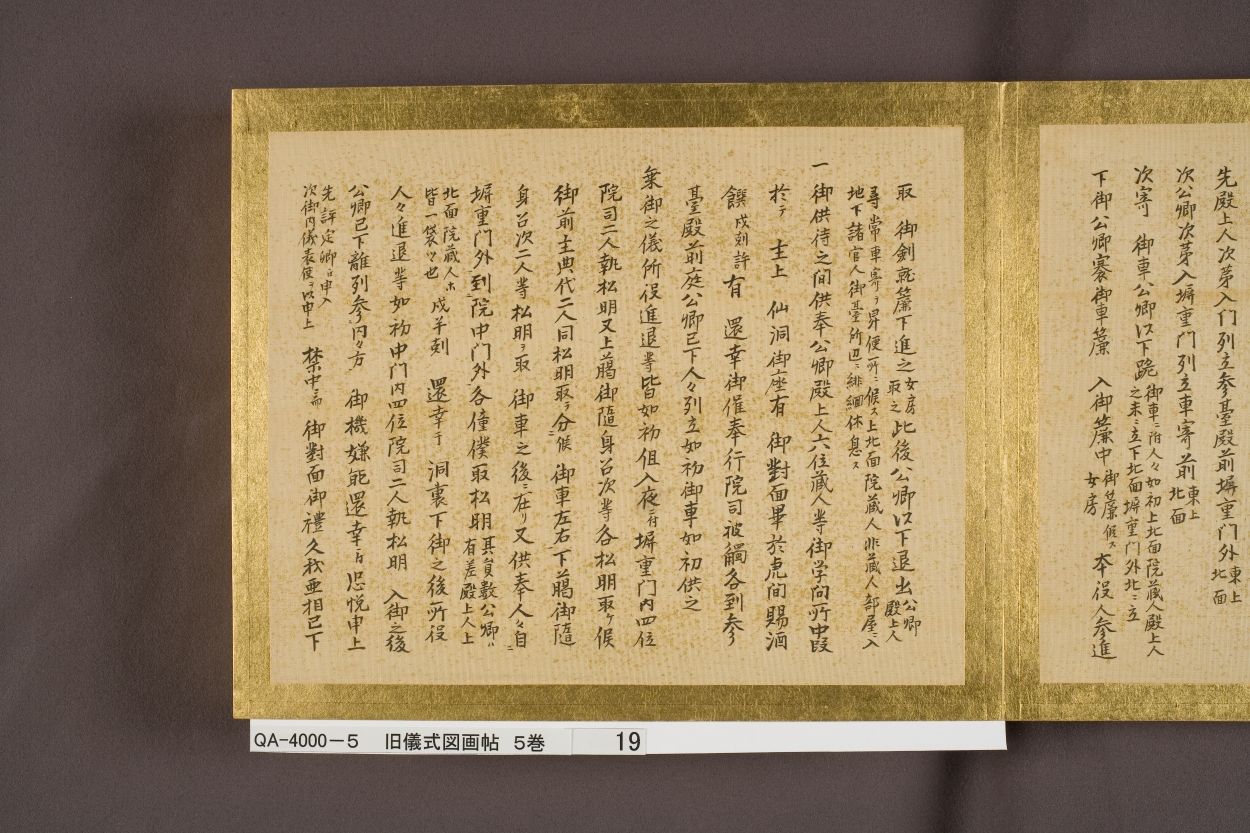 先殿上人次第入门列立参臺殿前塀重门外東上北面
次公卿次第入塀重门列立車寄前東上北面
次寄 御車公卿以下跪御車ニ附人々如初上北面院蔵人殿上人之末ニ立下北面塀重门外北ニ立
下御公卿褰御車簾 入御簾中御簾候ス女房 本役人参進
取 御劍就簾下進之女房取之 此後公卿以下退出公卿殿上人
尋常車寄ヲ昇便所ニ候ス上北面院蔵人非蔵人部屋ニ入
地下諸官人御臺所辺ニ徘徊休息ス
一御供待之间供奉公卿殿上人六位蔵人等御学问所中段
於テ 主上 仙洞御座有 御對面畢於虎间賜酒
饌戌刻許有 還幸御催奉行院司被觸各到参
臺殿前庭公卿已下人々列立如初御車如初供之
乗御之儀所役進退等皆如初但入夜ニ付塀重门内四位
院司二人執松明又上臈御隨身召次等各松明取ケ候
御前主典代二人同松明取ヲ分候 御車左右ニ下臈御隨
身召次二人等松明ヲ取 御車之後ニ在リ又供奉人々自ニ
塀重门外到院中门外各僮僕取松明其員数公卿ハ有差殿上人上
北面院蔵人ホ皆一袋々也 戌半刻 還幸于 洞裏下御之後所役
人々進退等如初中门内四位院司二人執松明 入御之後
公卿已下離列参内々方 御機嫌能還幸ニ付恐悦申上
先評定卿ニ申入次御内儀表使ヲ以申上 禁中ニ而 御對面御禮久我亜相已下
QA-4000-5 旧儀式図画帖 5巻 19